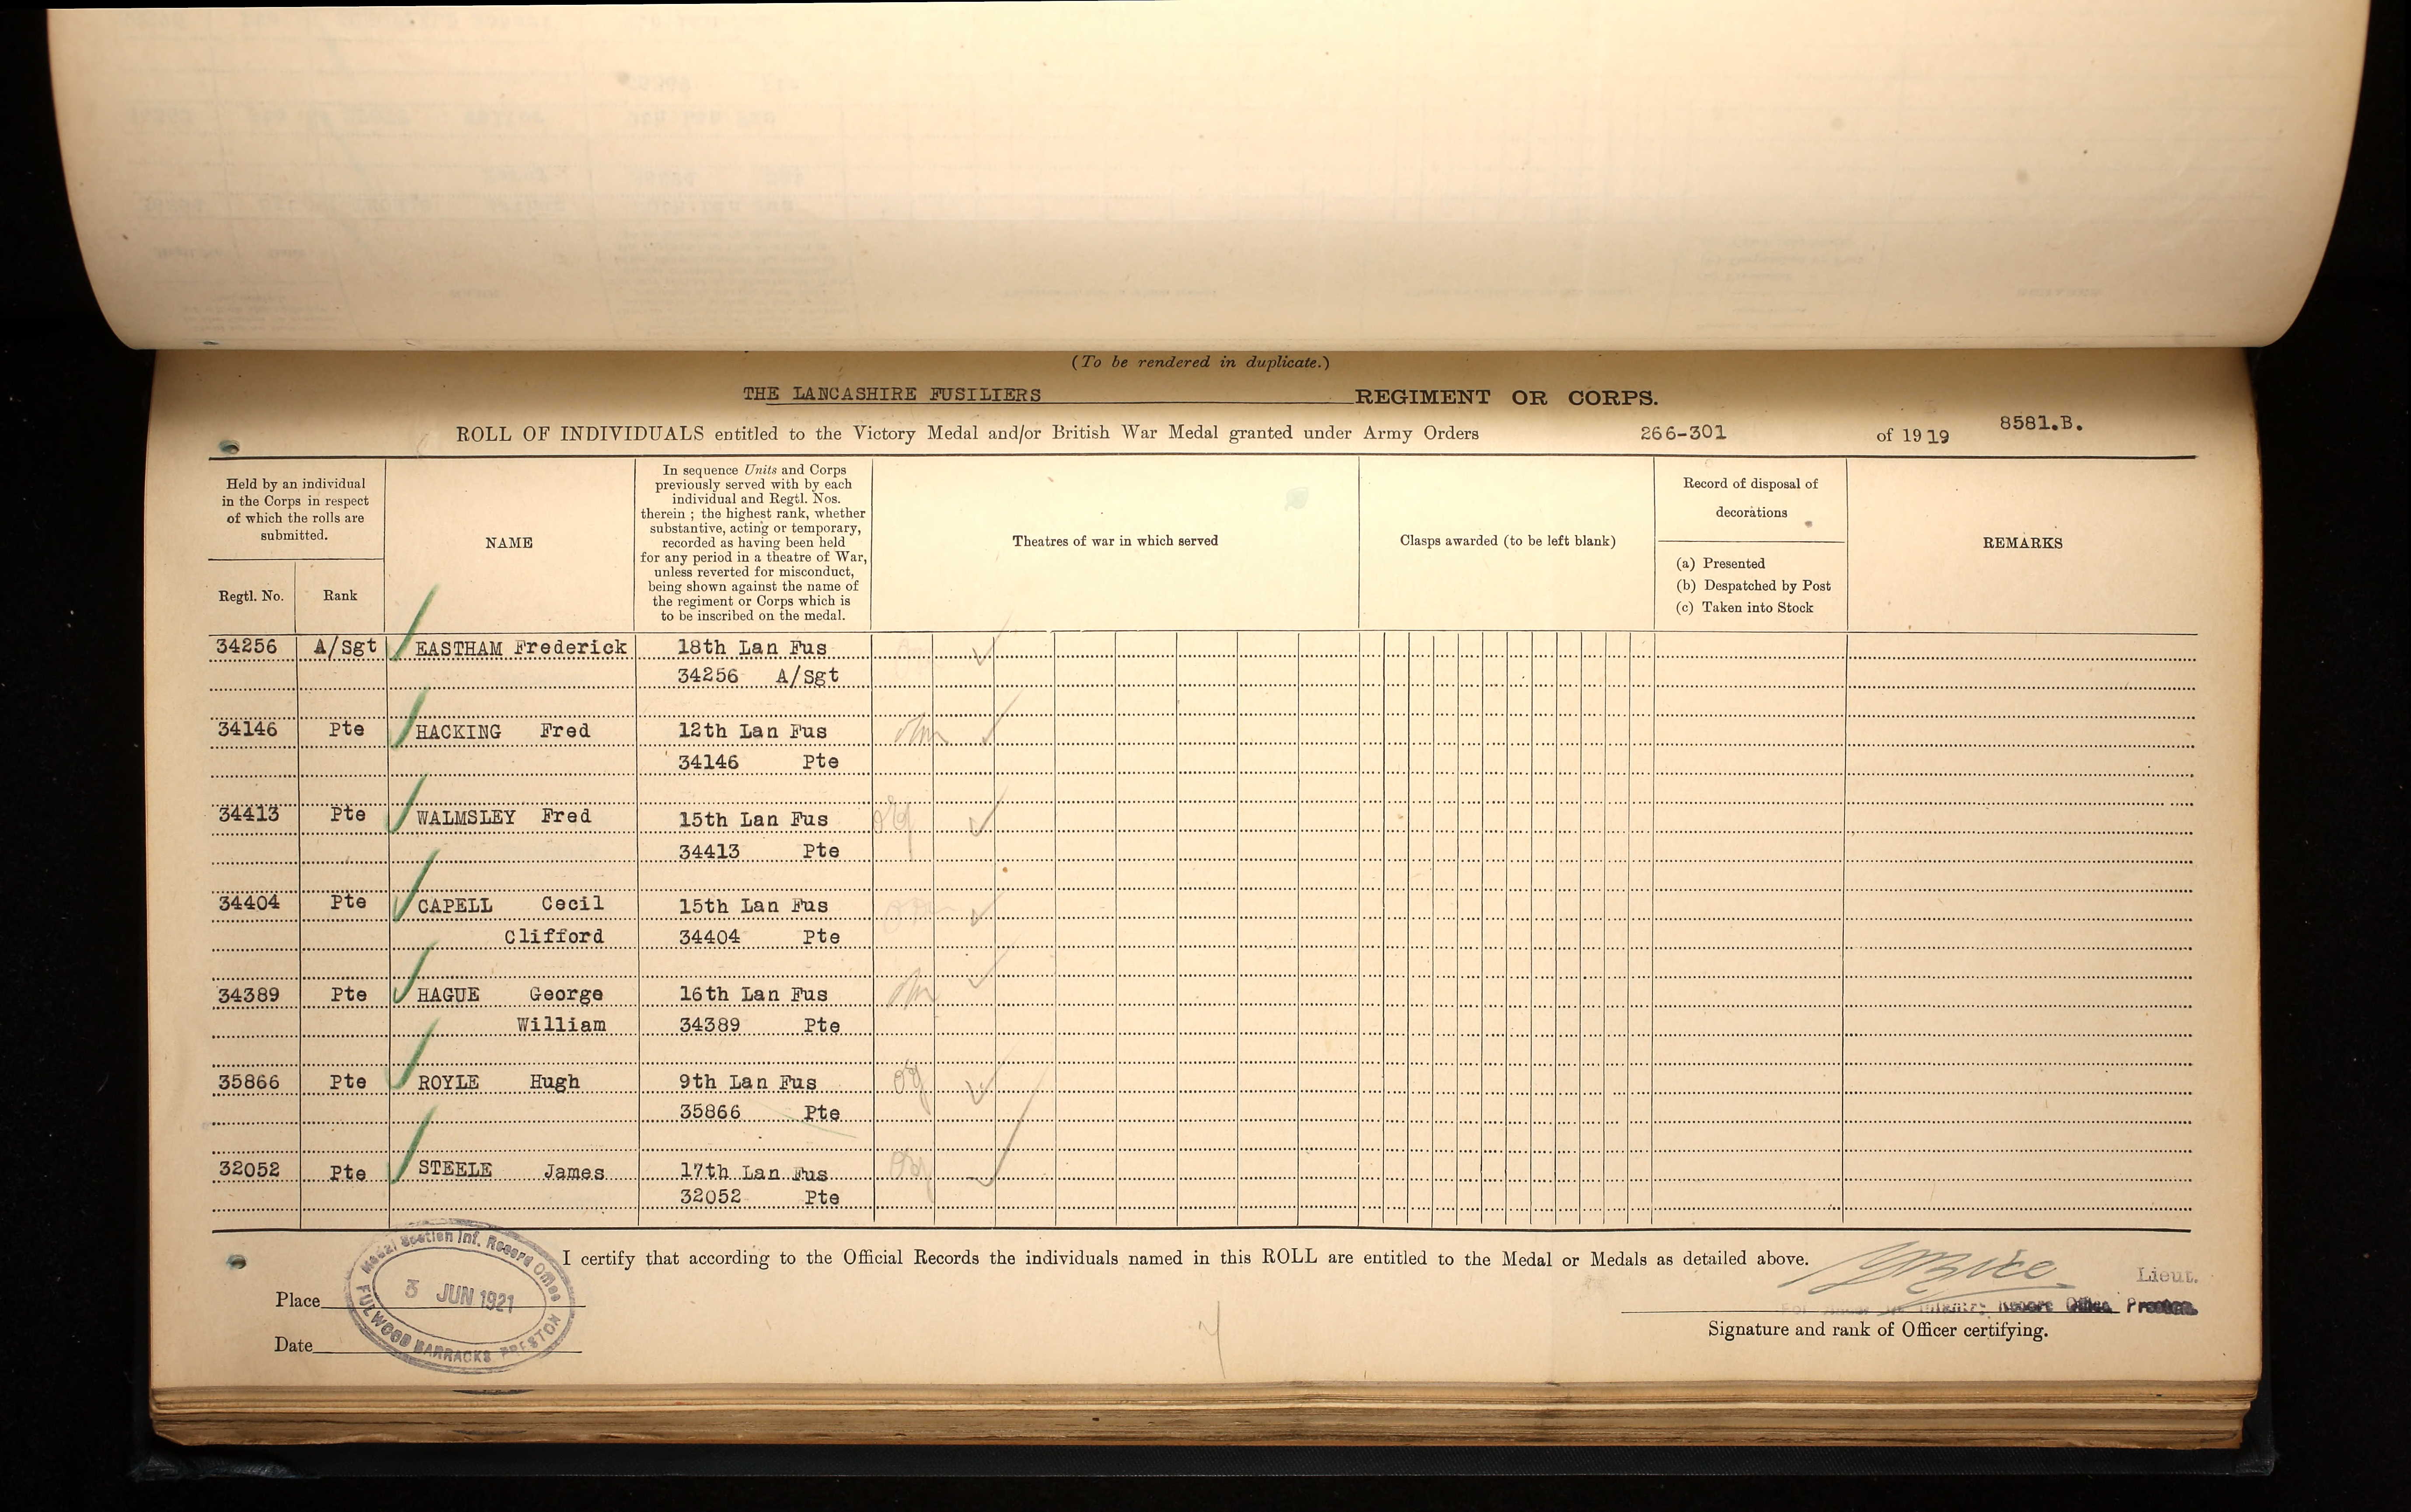 (To be rendered in duplicate.)
THE LANCASHIRE FUSILIERS REGIMENT OR CORPS.
8581.B.
ROLL OF INDIVIDUALS entitled to the Victory Medal and/or British War Medal granted under Army Orders 266-301 of 1919
Held by an individual
in the Corps in respect
of which the rolls are
submitted.
Regtl. No.
Rank
NAME
In sequence Units and Corps
previously served with by each
individual and Regtl. Nos.
therein ; the highest rank, whether
substantive, acting or temporary,
recorded as having been held
for any period in a theatre of War,
unless reverted for misconduct,
being shown against the name of
the regiment or Corps which is
to be inscribed on the medal.
Theatres of war in which served
Clasps awarded (to be left blank)
Record of disposal of
decorations
(a) Presented
(b) Despatched by Post
(c) Taken into Stock
REMARKS
34256 A/Sgt EASTHAM Frederick 18th Lan Fus
34256 A/Sgt
34146 Pte HACKING Fred 12th Lan Fus
34146 Pte
34413 Pte WALMSLEY Fred 15th Lan Fus
34413 Pte
34404 Pte CAPELL Cecil 15th Lan Fus
Clifford 34404 Pte
34389 Pte HAGUE George 16th Lan Fus
William 34389 Pte
35866 Pte ROYLE Hugh 9th Lan Fus
35866 Pte
32052 Pte STEELE James 17th Lan Fus
32052 Pte
I certify that according to the Official Records the individuals named in this ROLL are entitled to the Medal or Medals as detailed above.
Medal Section Inf. Record Office
3 JUN 1921
FULWOOD BARRACKS PRESTON
Lieut.
Infantry Record Office, Preston.
Place
Signature and rank of Officer certifying.
Date